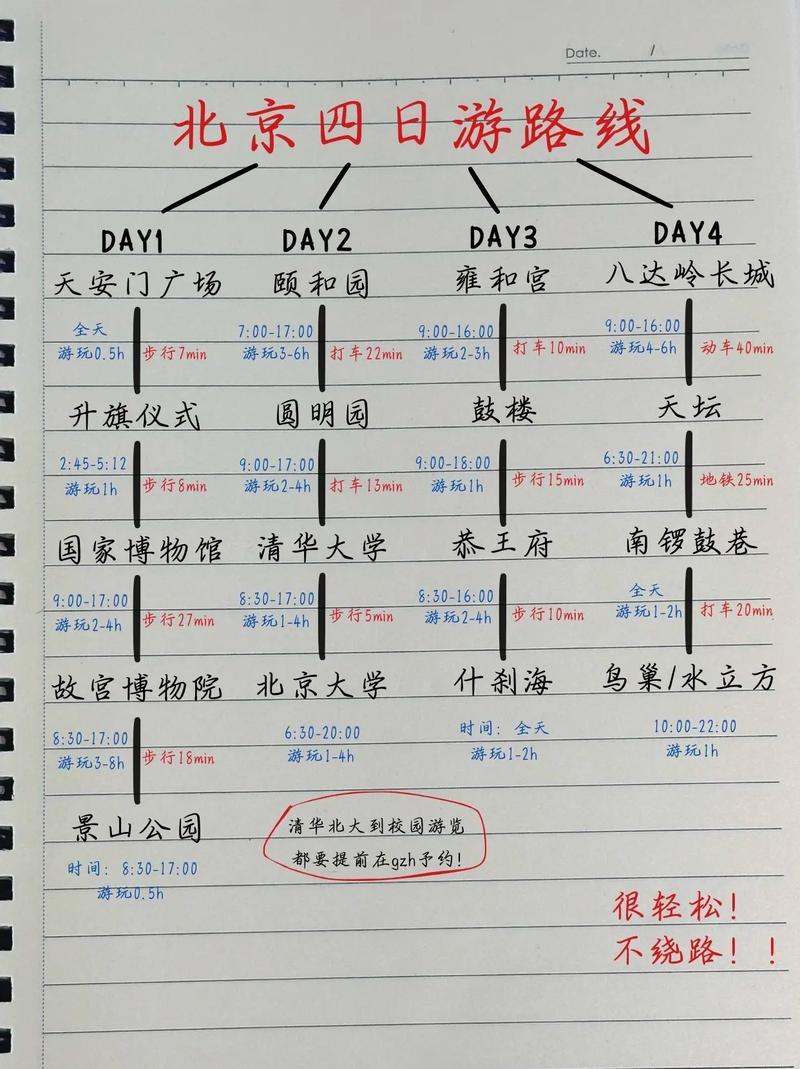 Date. /
北京四日游路线
DAY1
天安门广场
全天
游玩0.5h
步行7min
升旗仪式
2:45-5:12
游玩1h
步行8min
国家博物馆
9:00-17:00
游玩2-4h
步行27min
故宫博物院
8:30-17:00
游玩3-8h
步行18min
景山公园
时间: 8:30-17:00
游玩0.5h
DAY2
颐和园
7:00-17:00
游玩3-6h
打车22min
圆明园
9:00-17:00
游玩2-4h
打车13min
清华大学
8:30-17:00
游玩1-4h
步行5min
北京大学
6:30-20:00
游玩1-4h
清华北大到校园游览
都要提前在gzh予约!
DAY3
雍和宫
9:00-16:00
游玩2-3h
打车10min
鼓楼
9:00-18:00
游玩1h
步行15min
恭王府
8:30-16:00
游玩2-4h
步行10min
什刹海
时间: 全天
游玩1-2h
DAY4
八达岭长城
9:00-16:00
游玩4-6h
动车40min
天坛
6:30-21:00
游玩1h
地铁25min
南锣鼓巷
全天
游玩1-2h
打车20min
鸟巢/水立方
10:00-22:00
游玩1h
很轻松!
不绕路!!